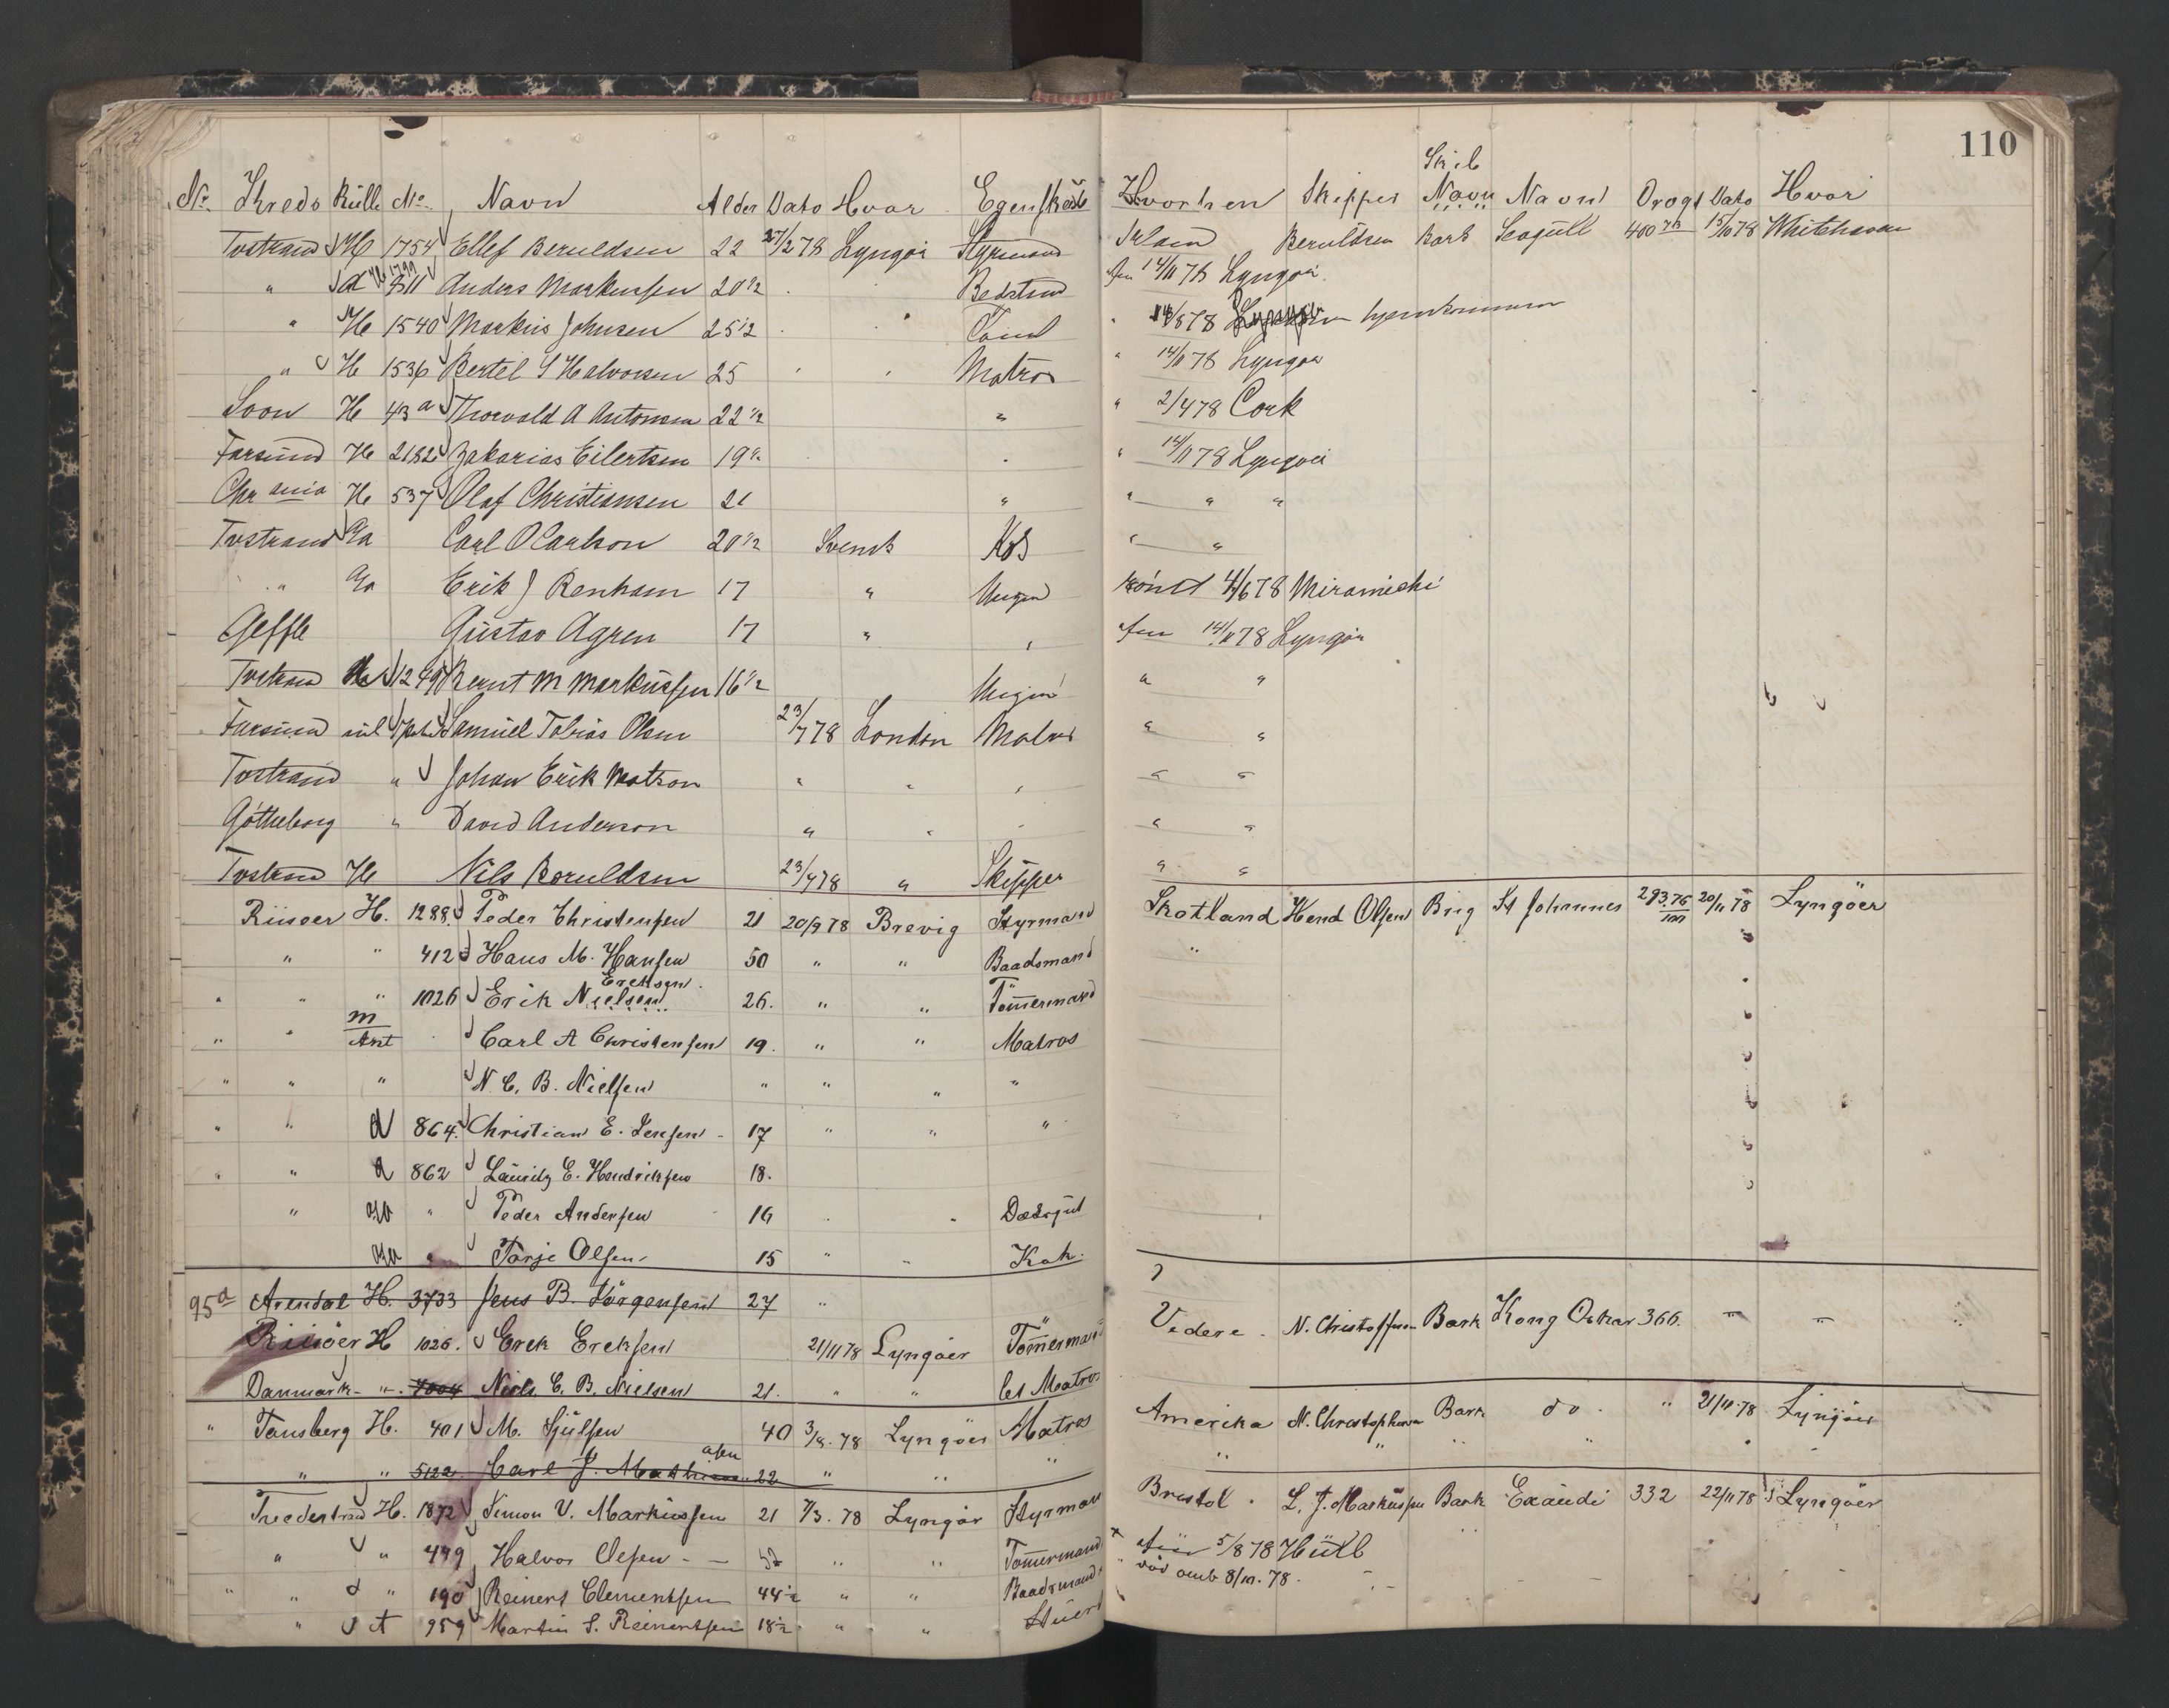 110
No. Kreds Rülle No. Navn Alder Dato Hvor Egenskab Hvorhen Skipper Skib Navn Navn Drægt Dato Hvor
Tvstrand H 1754 Ellef Beruldsen 22 27/2 78 Lyngör Styrmand Irland Beruldsen Bark Seagull 400 15/10 78 Whitehaven
" a 911 H 1799 Anders Markussen 20 1/2 Bedstmd 14/11 78 Lyngör
" H 1540 Markus Johnsen 25 1/2 Tömd 14/8 78 hjemkommen
" H 1536 Bertel S Halvorsen 25 Matros " 14/11 78 Lyngör
Soon H 43 a Thorvald A Antonsen 22 1/2 " " 2/4 78 Cork
Farsund H 2182 Zakarias Eilertsen 19 " 14/11 78 Lyngör
Chrania H 537 Olaf Christiansen 21 " " " "
Tvstrand Ga Carl O Carlson 20 1/2 Svensk Kok " "
" Ga Erik J Renham 17 " Ungmd römt 4/6 78 Miramichi
Geffle Gustav Agren 17 " " 14/11 78 Lyngör
Tvstrand 1249 Bernt M Markussen 16 1/2 Ungmd " "
Farsund Samuel Tobias Olsen 23/7 78 London Matros " "
Tvstrand " Johan Erik Matson " " " " "
Götheborg " David Anderson " " " " "
Tvstrand H Nils Beruldsen 23/7 78 " Skipper " "
Riisöer H. 1288 Peder Christensen 21 20/9 78 Brevig Styrmand Skotland Hend Olsen Brig St Johannes 293,76 20/11 78 Lyngöer
" " 412 Hans M. Hansen 50 " " Baadsmand "
" " " 1026 Erik Nielsen Ereksen 26. " " Tömmermand
" " m Ant Carl A Christensen 19. " " Matros
" " " N. C. B. Nielsen " " " "
" " a 864. Christian E. Jensen 17 " " "
" " a 862 Lauritz E. Hendriksen 18.
" " Peder Andersen 16 " Dæksgut
Tarje Olsen 15 " " Kok.
95a Arendal H. 3733 Jens B. Jörgensen 27 "
Riisöer H 1026. Erek Ereksen 21/11 78 Lyngöer Tömmermand Videre. N. Christoffersen Bark Kong Oskar 366. " "
Danmark " 7004 Niels C. B. Nielsen 21. " " let Matros
" Tønsberg H. 401 M. Sjülsen 40 3/8. 78 Lyngöer Matros Amerika N. Christophersen Bark do. " 21/11 78 Lyngöer
" " 5122. Carl J. Mathiasen 22 " " " " " " " "
Tvedestrand H. 1872 Simon V. Markussen 21 7/3. 78 Lyngör Styrman Bristol. L. J. Markussen Bark Exaudi 332 22/11 78 Lyngöer
" " 449 Halvor Olsen " " Tömmermand 5/8 78 Hüll
" " " 190 Reinert Clementsen 44 1/2 " " Baadsmand " död omb 8/10. 78.
" A 959 Martin S. Reinertsen 18 1/2 " " Stuert